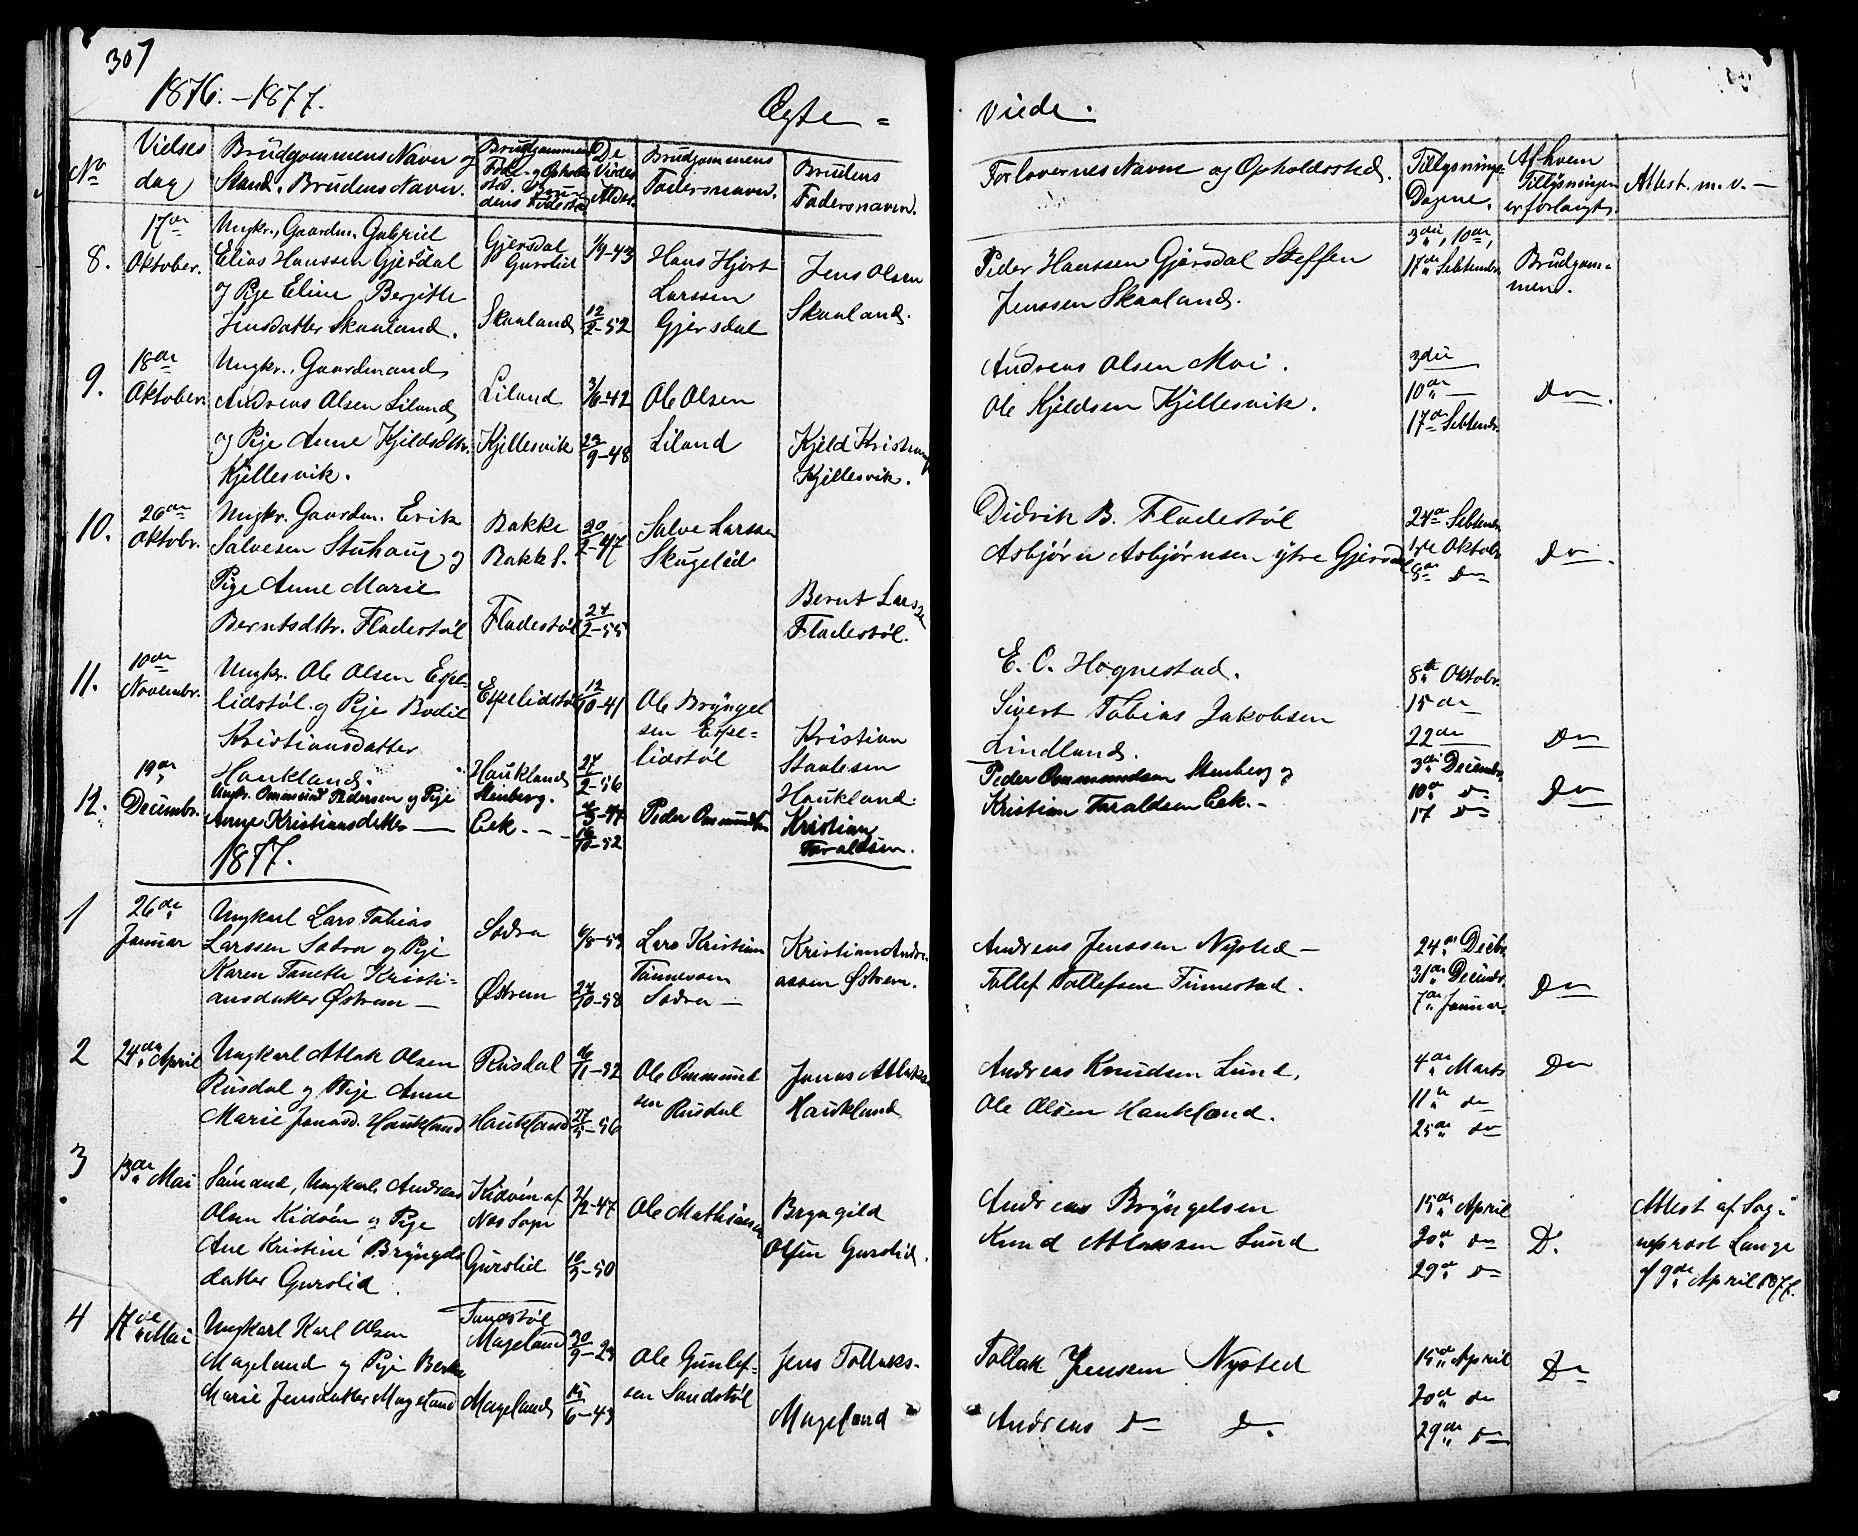 307
1876.-1877.
Ægte =
viede.
No
Vielses
dag
Brudgommens Navn og
Stand. Brudens Navn.
Brudgommens
Føde- og Opholds
sted. Bru
dens Fødested
De
Viedes
Alder.
Brudgommens
Fadersnavn.
Brudens
Fadersnavn.
Forlovernes Navne og Opholdssted.
Tillysnings
Dagene.
Af hvem
Tillysningen
er forlangt.
Attest. m. v. -
8.
17de
Oktober.
Ungkr., Gaardm. Gabriel
Elias Hanssen Gjersdal
og Pige Eline Bergitte
Jensdatter Skaaland.
Gjersdal
Gurslid
Skaaland
1/9-43
12/2-52
Hans Hjort
Larssen
Gjersdal
Jens Olsen
Skaaland.
Peder Hanssen Gjersdal Steffen
Jenssen Skaaland.
3die, 10de,
17de Septembr.
Brudgom=
men.
9.
18de
Oktober
Ungkr., Gaardmand
Andreas Olsen Liland
og Pige Anne Kjeldsdtr.
Kjellesvik.
Liland
Kjellesvik
3/6-42
29/9-48
Ole Olsen
Liland
Kjeld Kristians
Kjellesvik.
Andreas Olsen Moi.
Ole Kjeldsen Kjellesvik.
3die
10de
17de Septembr.
Do.
10.
26de
Oktobr.
Ungkr. Gaardm. Erik
Salvesen Stuhaug og
Pige Anne Marie
Berntsdtr. Fladestøl
Bakke
Bakke S.
Fladestøl
20/2-47
24/2-55
Salve Larssen
Skugelid
Bernt Larssen
Fladestøl.
Didrik B. Fladestøl
Asbjørn Asbjørnsen ytre Gjersdal
24de Septembr.
1ste Oktobr.
8de Do
Do.
11.
10de
Novembr.
Ungkr. Ole Olsen Espe-
lidstøl. og Pige Bodil
Kristiansdatter
Haukland.
Espelidstøl
Haukland
12/10-41
27/2-56
Ole Bryngel
sen Espe=
lidstøl
Kristian
Staalesen
Haukland.
E. C. Hognestad.
Sivert Tobias Jakobsen
Lindland.
8de Oktobr.
15de
22de
Do
12.
19de
Decembr.
Ungkr. Ommund Pedersen og Pige
Anne Kristiansdatter
Stenberg.
Eek. -
4/3-47
16/10-52
Peder Ommundsen
Kristian
Taraldsen.
Peder Ommundsen Stenberg og
Kristian Taraldsen Eek. -
3die Decembr.
10de Do
17 Do
Do
1877.
1
26de
Januar
Ungkarl Lars Tobias
Larssen Sædra og Pige
Karen Tanette Kristi-
ansdatter Østrem -
Sædra
Østrem
6/8-53
24/10-58
Lars Kristian
Tønnessen
Sædra -
Kristian Andre
assen Østrem.
Andreas Jenssen Nysted -
Tollef Tollefsen Finnestad.
24de Decbr.
31de Decembr.
7de Januar.
Do
2
24de April
Ungkarl Atlak Olsen
Rusdal og Pige Anne
Marie Jonasd. Haukland
Rusdal
Haukland
16/11-52
27/5-56
Ole Ommund
sen Rusdal
Jonas Atlaks
Haukland
Andreas Knudsen Lund,
Ole Olsen Haukland.
4de Marts
11te do
25de do
Do
3
13de Mai
Sømand, Ungkarl, Andreas
Olsen Kidøen og Pige
Ane Kristine Bryngels
datter Gurslid.
Kidøen af
Nes Sogn
Gurslid
2/12-47
10/3-50
Ole Mathiassen
Bryngild
Olsen Gurslid.
Andreas Bryngelsen
Knud Atlaksen Lund
15de April
20de do
29de do
D.
Attest af Sog-
neprest Lange
af 9de April 1877.
4
17de Mai
Ungkarl Karl Olsen
Mageland og Pige Berthe
Marie Jensdatter Mageland
Sandstøl
Mageland
Mageland
30/9-29
15/6-43
Ole Gunlef-
sen Sandstøl
Jens Tollaks-
Mageland
Tollak Jensen Nysted
Andreas Do Do.
15de April
20de do
29de do
Do